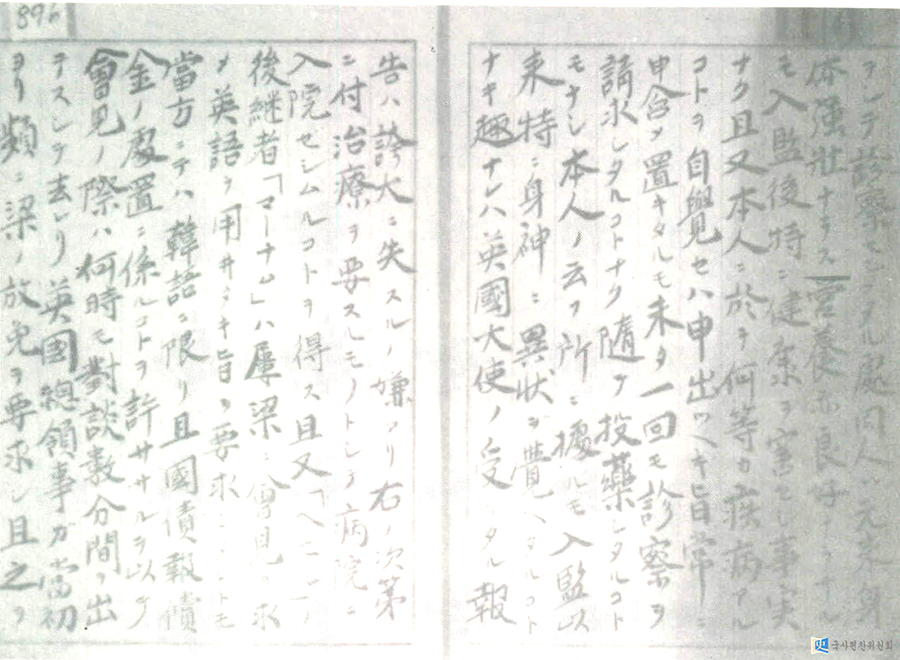 ヲシテ診察セシメタル處同人ハ元来身
体強壮ナラス営養亦良好ナラサル
モ入監後特ニ健康ヲ害セシ事実
ナク且又本人ニ於テ何等カ疾病アル
コトヲ自覺セハ申出ツヘキ旨常ニ
申含メ置キタルモ未タ一回モ診察ヲ
請求シタルコトナク随テ投藥シタルコト
モナシ本人ノ云フ所ニ據ルモ入監以
来特ニ身神ニ異状ヲ覺ヘタルコト
ナキ趣ナレハ英國大使ノ受ケタル報
896
告ハ誇大ニ失スルノ嫌アリ右ノ次第
ニ付治療ヲ要スルモノトシテ病院ニ
入院セシムルコトヲ得ス且又
後継者「マーナム」ハ屢梁ニ會見ヲ求
メ英語ヲ用ヰタキ旨ヲ要求
當方ニテハ韓語ニ限リ且國債報償
金ノ處置ニ係ルコトヲ許ササルヲ以テ
會見ノ際ハ何時モ對談數分間ヲ出
テスシテ去レリ英國總領事ガ當初
ヨリ頻ニ梁ノ放免ヲ要求シ且之ヲ
국사편찬위원회